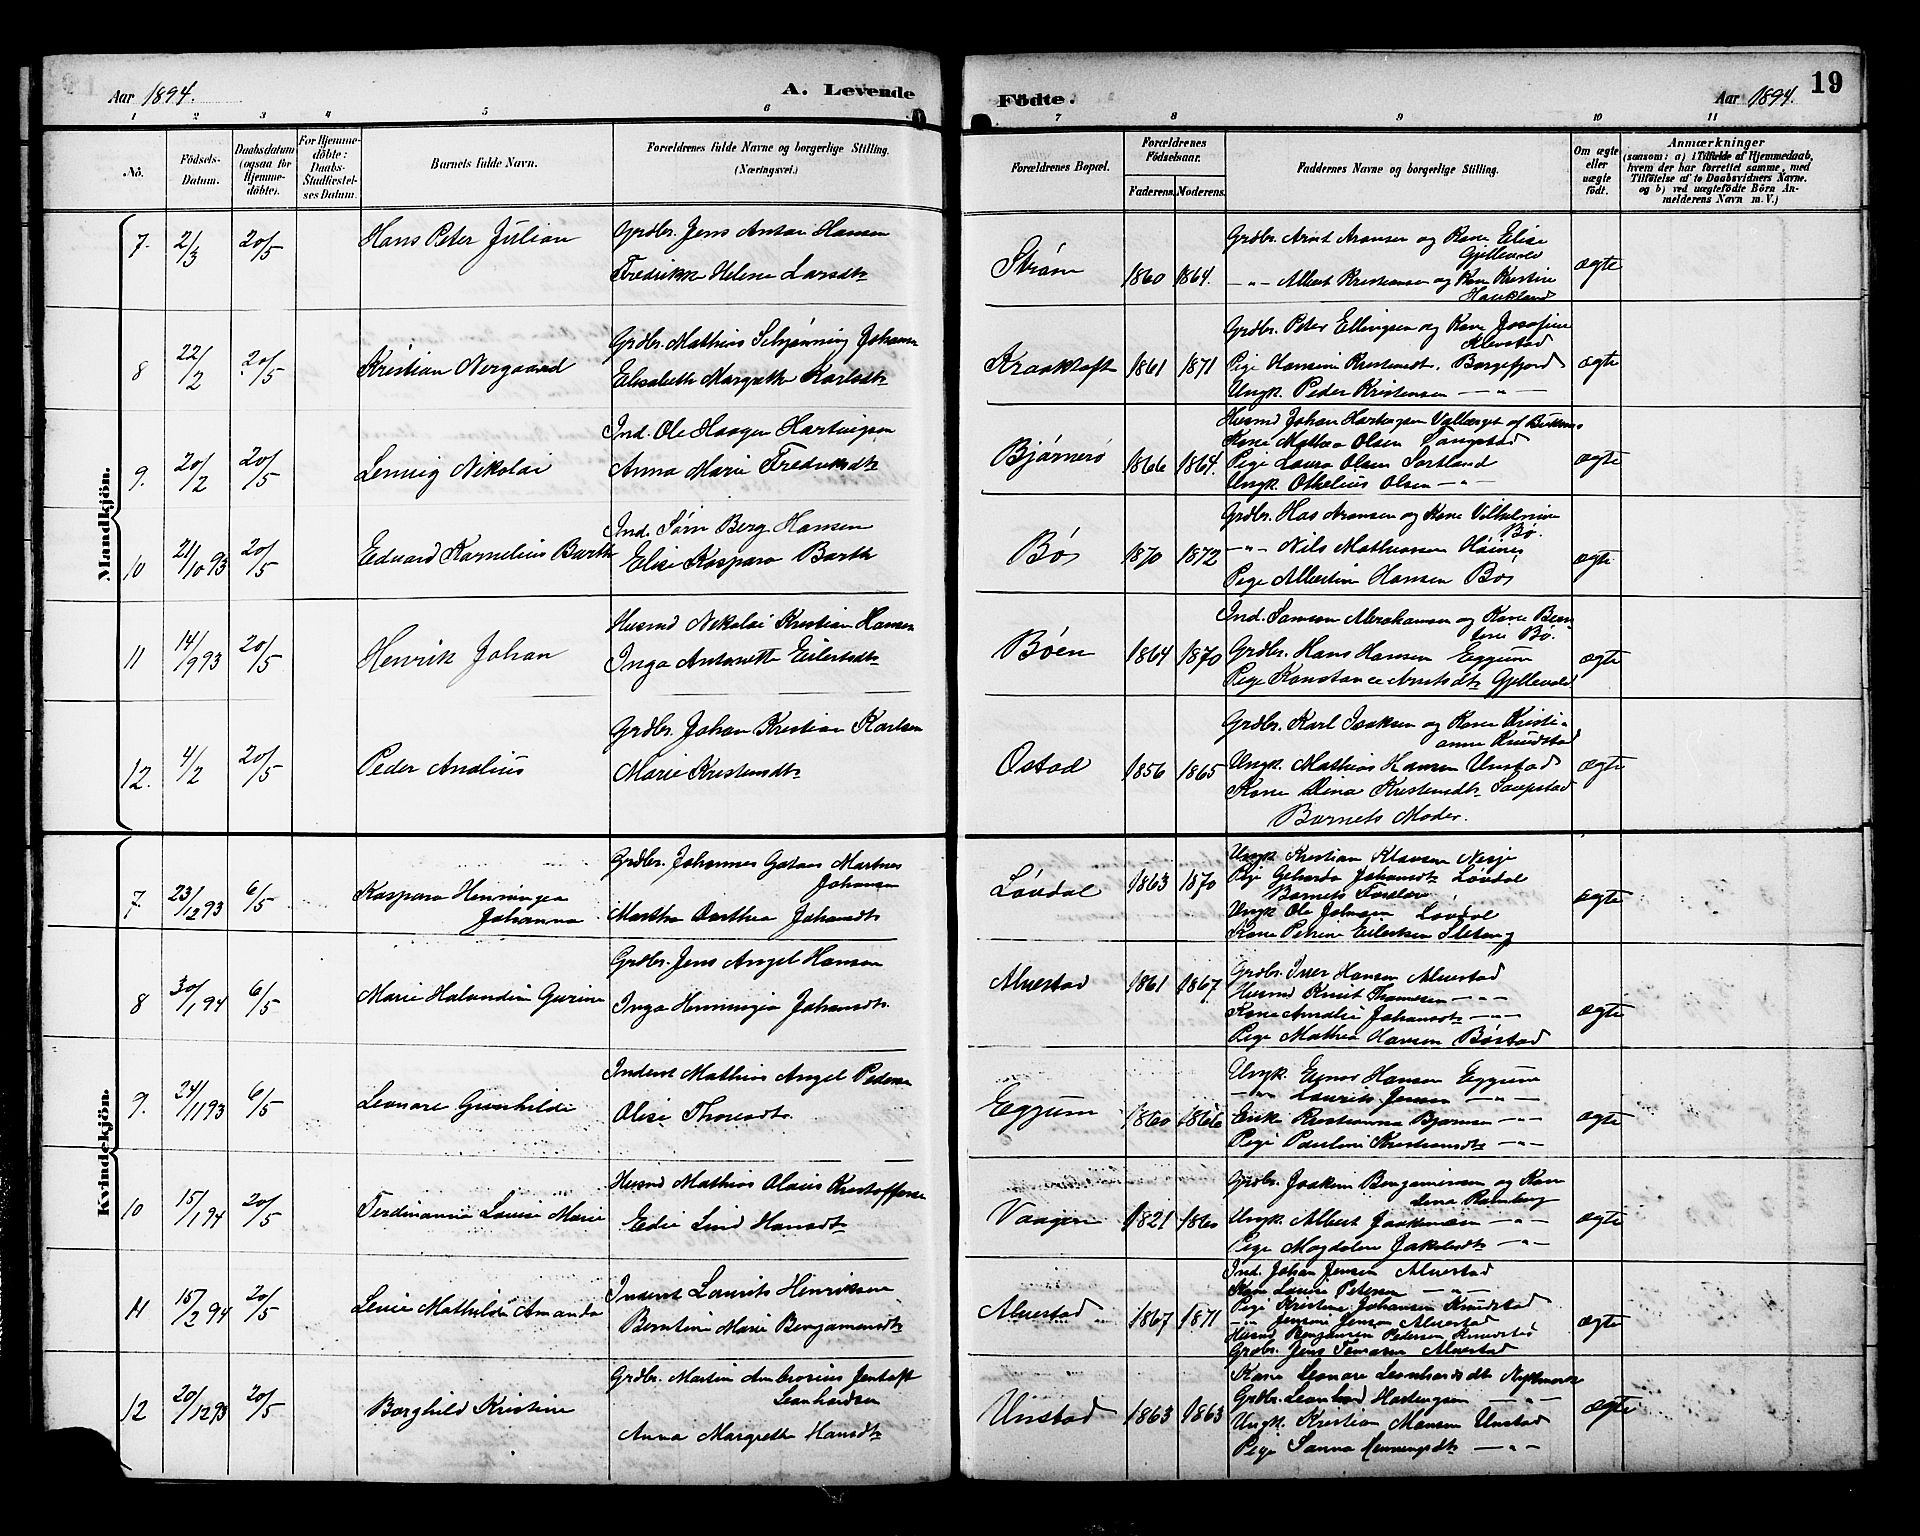 Aar 1894. A. Levende
Födte. Aar 1894. 19
1 2 3 4 5 6 7 8 9 10 11
No.
Födsels-Datum.
Daabsdatum (ogsaa for Hjemme-döbte).
For Hjemme-döbte: Daabs-Stadfæstel-ses Datum.
Barnets fulde Navn.
Forældrenes fulde Navne og borgerlige Stilling. (Næringsvei.)
Forældrenes Bopæl.
Forældrenes Födselsaar.
Faderens. Moderens.
Faddernes Navne og borgerlige Stilling.
Om ægte eller uægte födt.
Anmærkninger
(saasom: a) i Tilfælde af Hjemmedaab,
hvem der har forrettet samme, med
Tilföielse af to Daabsvidners Navne.
og b) ved uægtefödte Börn An-
melderens Navn m. V.)
Mandkjön.
7. 2/3 20/5 Hans Peter Julian
Grdbr. Jens Anton Hansen
Fredrikke Helene Larsdtr
Strøm 1860 1864.
Grdbr. Arnt Aronsen og Kone Elise
Gjellevold
-"- Albert Kristiansen og Kone Kristine
Haukland
ægte
8 22/2 20/5 Kristian Nergaard
Grdbr. Mathias Schjønning Johansen
Elisabeth Margrethe Karlsdtr
Kraaktoft 1861 1871
Grdbr. Peter Ellingsen og Kone Josefine
Alvestad
Pige Hansine Kristensdtr. Borgefjord
Ungk. Peder Kristensen -"-
ægte
9. 20/2 20/5 Lenvig Nikolai
Ind. Ole Haagen Hartvigsen
Anna Marie Fredriksdtr
Bjørnerø 1866 1864.
Husmd Johan Hartvigsen
Kone Mathea Olsen
Pige Laura Olsen Sortland
Ungk. Othelius Olsen -"-
ægte
10 21/10 93 20/5 Edvard Kornelius Barth
Ind. Sørn Berg Hansen
Elise Kaspara Barth
Bø 1870 1872
Grdbr. Has Aronsen og Kone Vilhelmine
Bø.
-"- Nils Mathiassen
Pige Albertine Hansen Bø
ægte
11 14/9 93 20/5 Henrik Johan
Husmd Nikolai Kristian Hansen
Inga Antonette Eilertsdtr
Bøen 1864 1870
Ind. Samson Abrahamsen og Kone Beren
tine Bø.
Grdbr. Hans Hansen Eggum
Pige Konstance Arntsdtr Gjellevold
ægte
12. 4/2 20/5 Peder Analius
Grdbr. Johan Kristian Karlsen
Marie Kristensdtr
Ostad 1856 1865
Grdbr. Karl Isaksen og Kone Kristi-
anne Knudstad
Ungk. Mathias Hansen Unstad
Kone Dina Kristensdtr Saupstad
Barnets Moder.
ægte
Kvindekjön.
7. 23/12 93 6/5 Kaspara Henningea
Johanna
Grdbr. Johannes Gotaas Martnes
Johansen
Martha Dorthea Johansdtr
Løvdal 1863 1870
Ungk. Kristian Klausen Nesje
Pige Geharda Johansdtr Løvdal
Barnets Forældre
Ungk Ole Johnsen Løvdal
Kone Petrine Eilertsen
ægte
8 30/1 94 6/5 Marie Halandine Gurine
Grdbr. Jens Angel Hansen
Inga Henningia Johansdtr
Alvestad 1861 1867
Grdbr. Iver Hansen Alvestad
Husmd Knut Thomesen -"-
Kone Amalie Johansdtr -"-
Pige Mathea Hansen Bøstad
ægte
9. 24/11 93 6/5 Leonare Gunhilde
Inderst Mathias Angel Pedersen
Olise Thoresdtr
Eggum 1860 1866
Ungk. Einar Hansen Eggum
-"- Laurits Jensen -"-
Enke Kristianna Bjørnsen -"-
Pige Pauline Kristiansdtr -"-
ægte
10 15/1 94 20/5 Ferdinanna Louise Marie
Husmd Mathias Olaus Kristoffersen
Edie Lind Hansdtr
Vaagen 1821 1860
Grdbr. Joakim Benjaminsen og Kone
Lina Ramberg
Ungk. Albert Joakimsen -"-
Pige Magdalene Jakobsdtr -"-
ægte
11 15/2 94 20/5 Lenie Mathilde Amanda
Inderst Laurits Henriksen
Berntine Marie Benjaminsdtr
Alvestad 1867 1871
Ind. Johan Jensen Alvestad
Kone Louise Petersen -"-
Pige Kristine Johansen Knudstad
-"- Jensine Jensen Alvestad
Husmd Benjamin Pedersen Knudstad
Grdbr. Jens Alvestad
ægte
12 20/12 93 20/5 Borghild Kristine
Grdbr. Martin Ambrosius Jentoft
Leonhardsen
Anna Margrethe Hansdtr
Unstad 1863 1863
Kone Leonare Leonhardsdtr
Grdbr. Leonhard Hartvigsen -"-
Ungk. Kristian Hansen Unstad
Pige Sanna Henningsdtr -"-
ægte